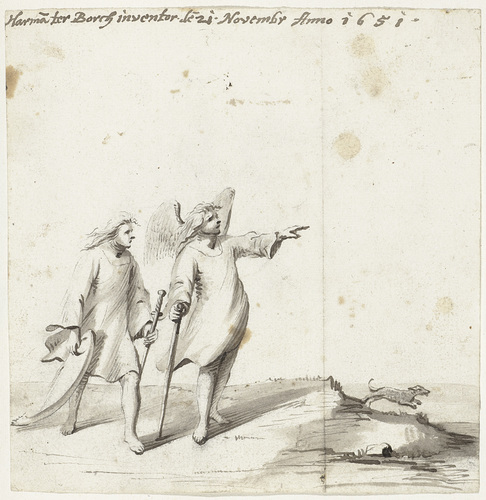 Harmã ter Borch inventor. dẽ 21. Novembr Anno 1651.